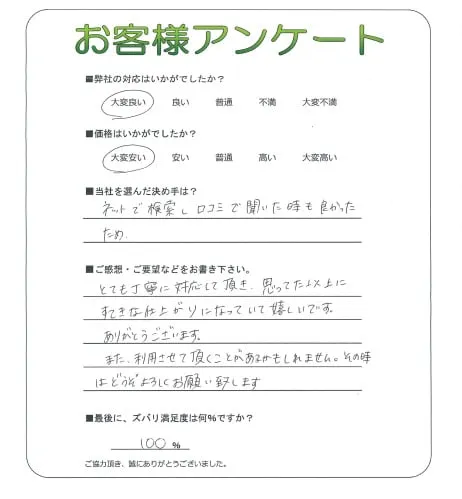 お客様アンケート
■弊社の対応はいかがでしたか？
大変良い 良い 普通 不満 大変不満
■価格はいかがでしたか？
大変安い 安い 普通 高い 大変高い
■当社を選んだ決め手は？
ネットで検索し口コミで聞いた時も良かった
ため．
■ご感想・ご要望などをお書き下さい。
とても丁寧に対応して頂き、思ってた以上に
すてきな仕上がりになっていて嬉しいです。
ありがとうございます。
また、利用させて頂くことがあるかもしれません。その時
はどうぞよろしくお願い致します
■最後に、ズバリ満足度は何%ですか？
100 %
ご協力頂き、誠にありがとうございました。